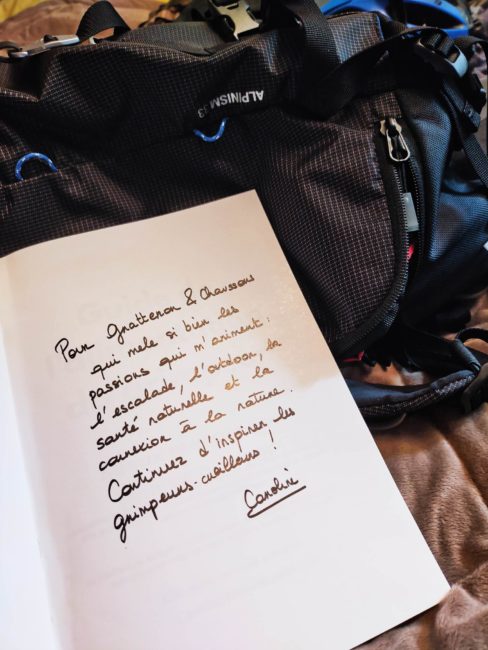 ALPINISM 33
Pour Gratteron & Chaussons
qui mele si bien les
passions qui m'animent :
l'escalade, l'outdoor, la
santé naturelle et la
connexion à la nature.
Continuez d'inspirer les
grimpeurs-cueilleurs !
Caroline